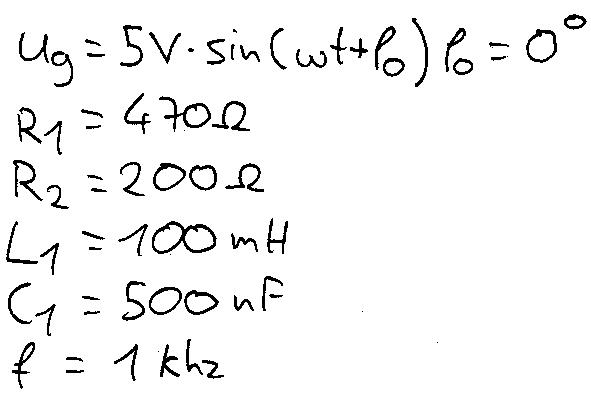 ug = 5V·sin(ωt+φ0) φ0 = 0°
R1 = 470Ω
R2 = 200Ω
L1 = 100mH
C1 = 500nF
f = 1khz